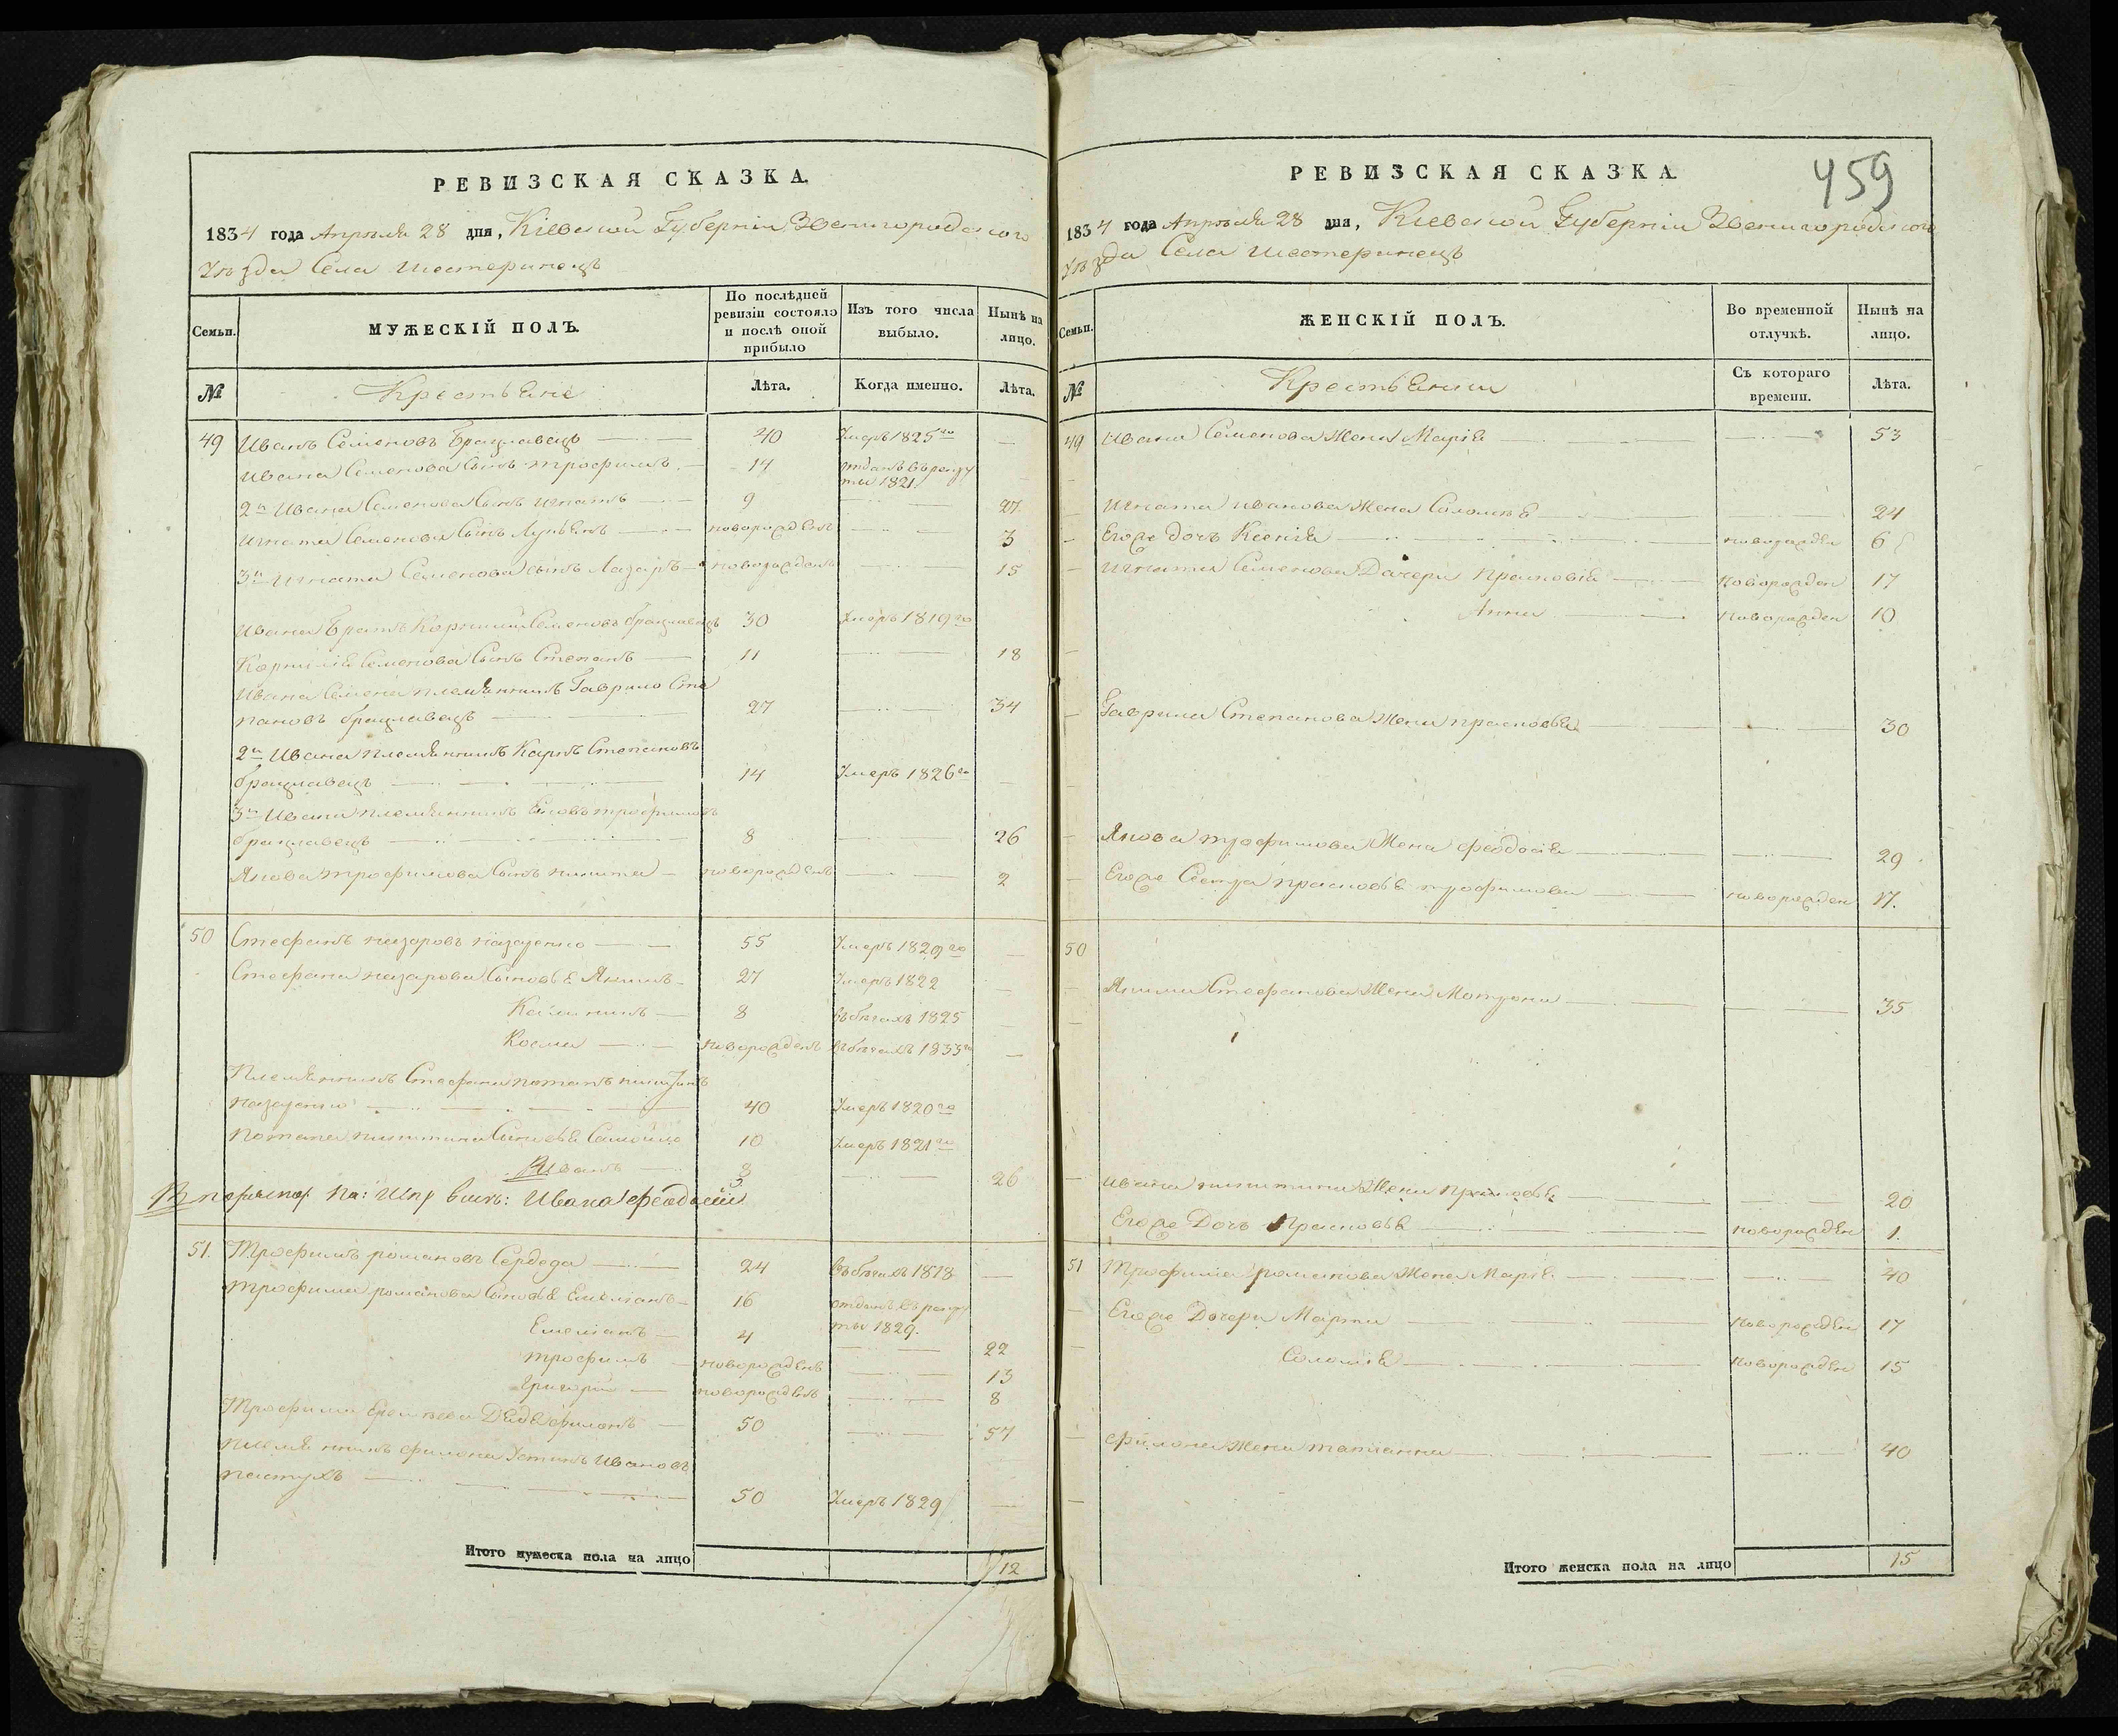 РЕВИЗСКАЯ СКАЗКА.
1834 года Апреля 28 дня, Кіевской Губерніи Звенигородского
Уезда Села Шестеринецъ
Семьи.
МУЖЕСКІЙ ПОЛЪ.
По послѣдней ревизіи состояло и послѣ оной прибыло
Изъ того числа выбыло.
Нынѣ на лицо.
№
Крестьяне
Лѣта.
Когда именно.
Лѣта.
49 Иванъ Семеновъ Брацлавецъ 40 Умеръ 1825го —
Ивана Семенова Сынъ Трофимъ 14 отданъ въ рекруты 1821. —
2й Ивана Семенова Сынъ Игнатъ 9 — 27
Игната Семенова Сынъ Лукьянъ новорожденъ — 3
3й Игната Семенова сынъ Лазаръ новорожденъ — 15
Ивана Братъ Корнилій Семеновъ брацлавецъ 30 Умеръ 1819го
Корнилія Семенова Сынъ Степанъ 11 — 18
Ивана Семена племянникъ Гаврило Сте
пановъ брацлавецъ 27 — 34
2й Ивана племянникъ Карпъ Степановъ
брацлавецъ 14 Умеръ 1826го —
3й Ивана племянникъ Яковъ трофимовъ
брацлавецъ 8 — 26
Якова трофимова Сынъ никита новорожденъ — 2
50 Стефанъ назаровъ назаренко 55 Умеръ 1829го —
Стефана назарова Сыновья Якимъ 27 Умеръ 1822 —
8 въ бегахъ 1825 —
Косма новорожденъ въ бегахъ 1833го —
Племянникъ Стефана потапъ никитинъ
назаренко 40 Умеръ 1820го
потапа никитина Сыновья Самойло 10 Умеръ 1821го
Иванъ 8 — 26
Ивана Феодосій
51. Трофимъ романовъ Середа 24 въ бегахъ 1818 —
трофима романова Сыновья Емелианъ 16 отданъ въ рекруты 1829.
Емелианъ 4 — 22
трофимъ новорожденъ — 13
Григорій новорожденъ — 8
Трофима Дядя филонъ 50 — 57
племянникъ филона Устинъ Ивановъ
пастухъ 50 Умеръ 1829 —
Итого мужеска пола на лицо 12
РЕВИЗСКАЯ СКАЗКА.
459
1834 года Апреля 28 дня, Кіевской Губерніи Звенигородского
Уезда Села Шестеринецъ
Семьи.
ЖЕНСКІЙ ПОЛЪ.
Во временной отлучкѣ.
Нынѣ на лицо.
№
Крестьянки
Съ котораго времени.
Лѣта.
49 Ивана Семенова Жена Марія — 53
Игната иванова Жена Соломея — 24
Егоже дочъ Ксенія новорожден 6
Игната Семенова Дочери Прасковія новорожден 17
Анна новорожден 10
Гаврила Степанова Жена прасковья — 30
Якова трофимова Жена феодосія — 29
Егоже Сестра прасковья трофимова новорожден 17.
50
Якима Стефанова Жена Мотрона — 35
Ивана никитина Жена Прасковья — 20
Егоже Дочъ Прасковья новорожден 1.
51 Трофима романова Жена Марія — 40
Егоже Дочери Марта новорожден 17
Соломія новорожден 15
филона Жена татианна — 40
Итого женска пола на лицо 15